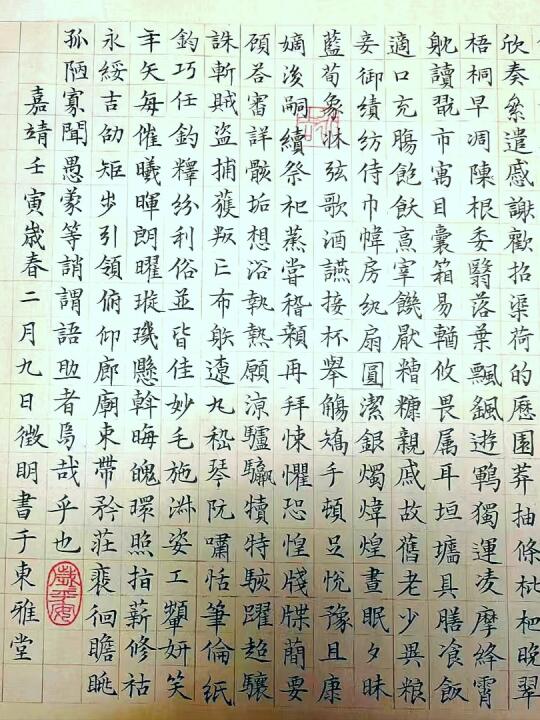 欣奏絫遣慼謝歡招渠荷的歷園莽抽條枇杷晚翠
梧桐早凋陳根委翳落葉飄飖遊鵾獨運凌摩絳霄
耽讀翫市寓目囊箱易輶攸畏属耳垣墻具膳飡飯
適口充腸飽飫烹宰饑厭糟糠親戚故舊老少異粮
妾御績紡侍巾帷房紈扇圓潔銀燭煒煌晝眠夕昧
藍筍象牀弦歌酒讌接杯舉觴矯手頓足悅豫且康
嫡後嗣續祭祀蒸嘗稽顙再拜悚懼恐惶牋牒簡要
顧答審詳骸垢想浴執熱願涼驢騾犢特駭躍超驤
誅斬賊盜捕獲叛亡布躲遼丸嵇琴阮嘯恬筆倫紙
鈞巧任釣釋紛利俗並皆佳妙毛施淑姿工顰妍笑
年矢每催曦暉朗曜璇璣懸斡晦魄環照指薪修祜
永綏吉劭矩步引領俯仰廊廟束帶矜莊裵徊瞻眺
孤陋寡聞愚蒙等誚謂語助者焉哉乎也
嘉靖壬寅歲春二月九日徵明書于東雅堂